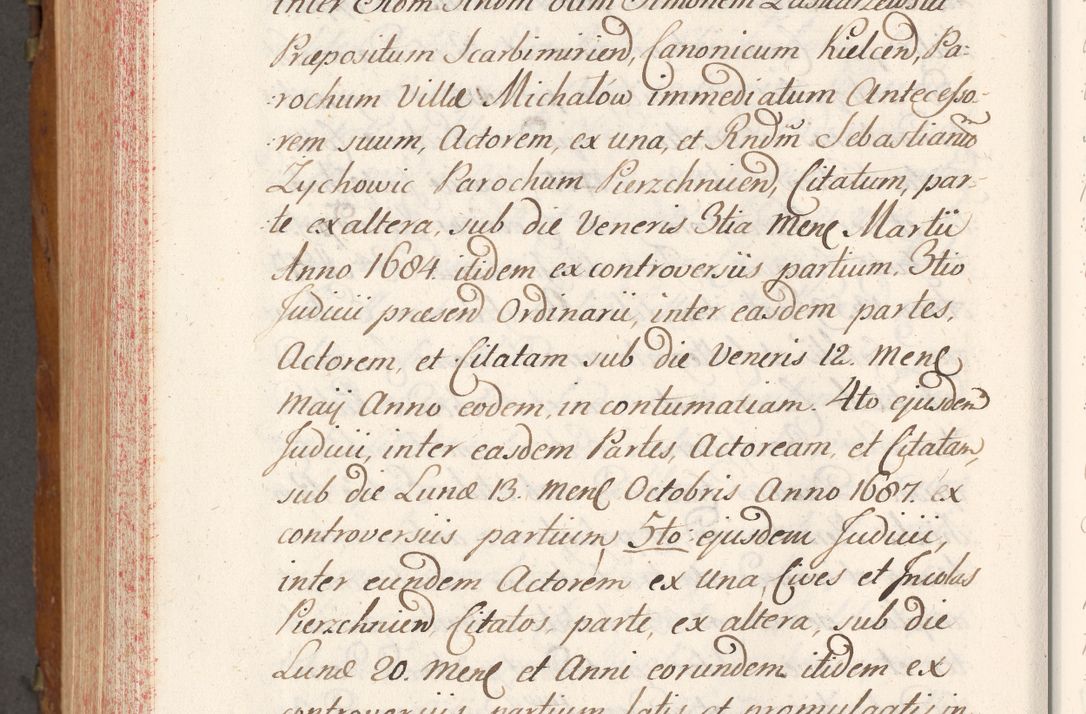 inter Rdom Rndm olim Simonem
Præpositum Scarbimirien, Canonicum Kielcen, Pa-
rochum Villæ Michalow immediatum Antecesso-
rem suum, Actorem, ex una, et Rndm Sebastianū
Zychowic Parochum Pierzchnien, Citatum, par-
te ex altera, sub die Veneris 3tia Mens Martii
Anno 1684. itidem ex controversiis partium. 3tio
Judicii præsen Ordinarii, inter easdem partes,
Actorem, et Citatam sub die Veneris 12. Mens
Maij Anno eodem, in contumatiam. 4to ejusdem
Judicii, inter easdem Partes, Actoream, et Citatam,
sub die Lunæ 13. Mens Octobris Anno 1687. ex
controversiis partium, 5to ejusdem Judicii,
inter eundem Actorem ex una, Cives et Incolas
Pierzchnien, Citatos, parte, ex altera, sub die
Lunæ 20. Mens et Anni eorundem itidem ex
controversiis partium latis et promulgatis in